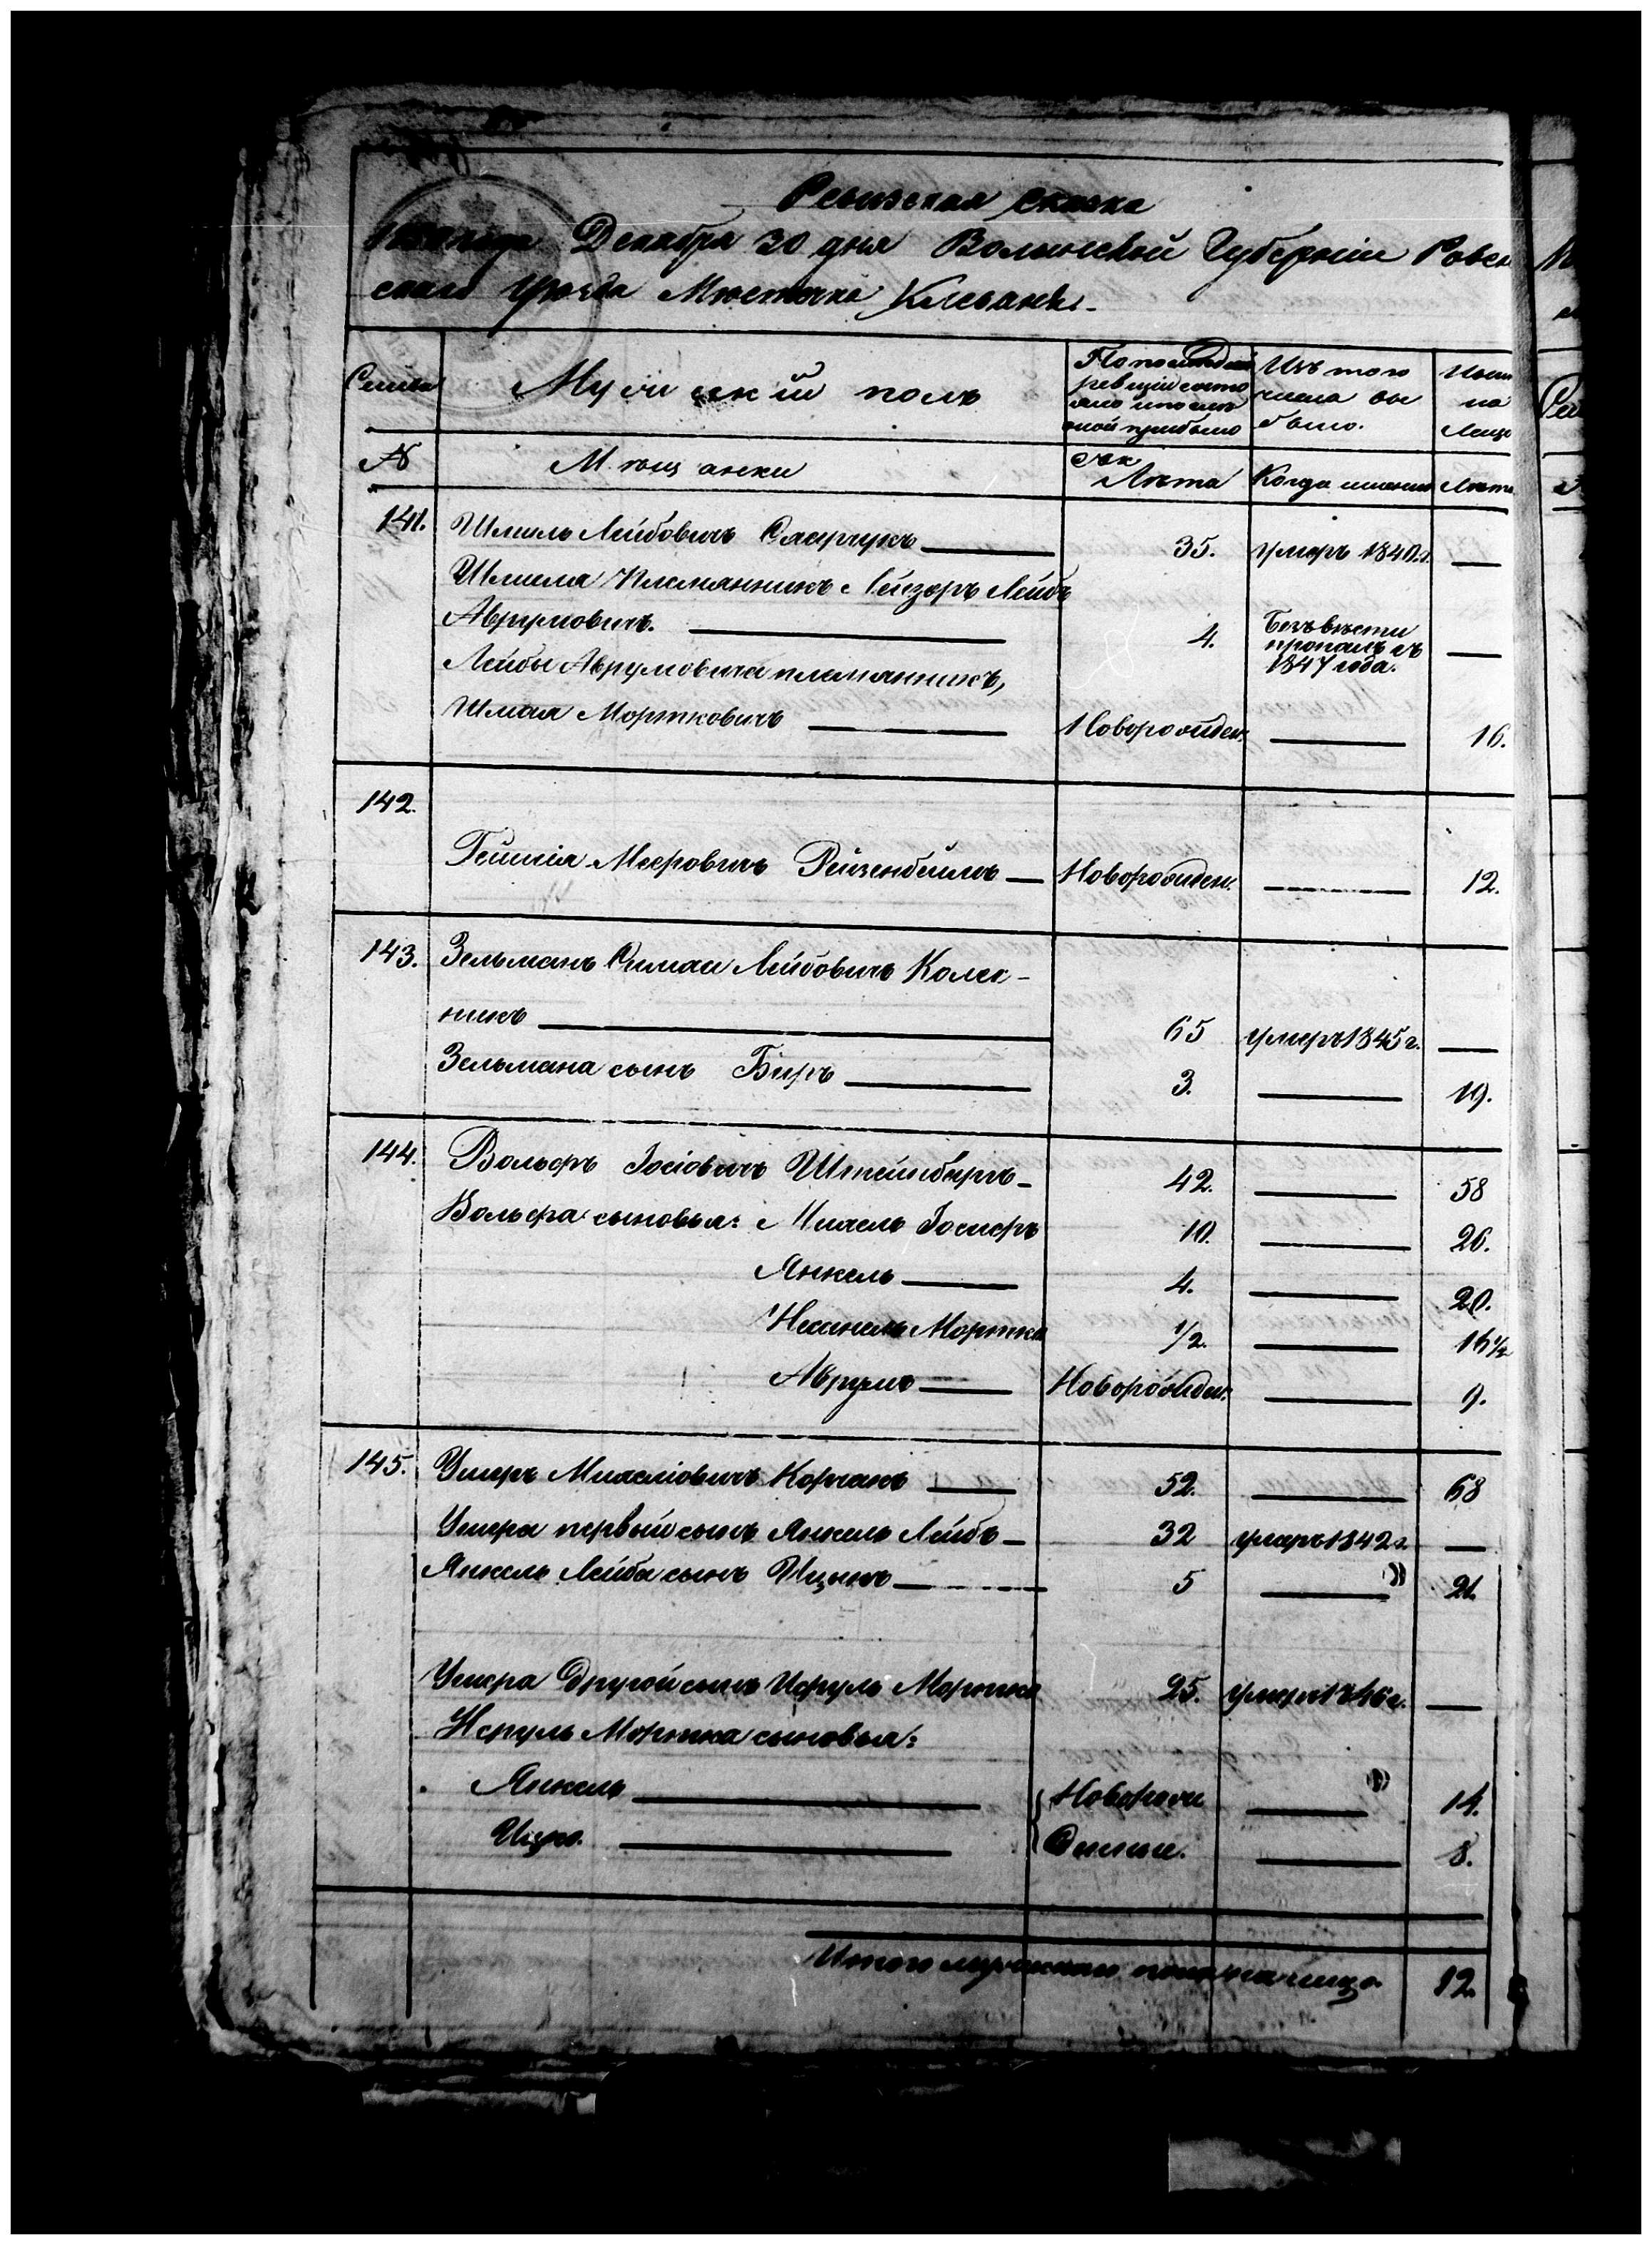 Ревизская сказка
1850 года Декабря 30 дня Волынской Губернии Ровен
скаго Уезда Местечка Клевань.
Семьи
Мужеский полъ
По последней ревизии состо яло и после оной прибыло
Изъ того числа вы было.
Ныне на лицо
№
Мещанки
Лета
Когда именно
Лета
141. Шмиль Лейбовичъ 35. умеръ 1840 г.
Шмиля племянникъ Лейзеръ Лейбъ
Аврумовичъ. 4. Безъ вести пропалъ съ 1847 года.
Лейбы Аврумовича племянникъ,
Шмая Мортковичъ Новорожден. 16.
142.
Мееровичъ Рейзенбеймъ Новорожден. 12.
143. Зельманъ Симаи Лейбовичъ Колес-
никъ 65 умеръ 1845 г.
Зельмана сынъ Беръ 3. 19.
144. Вольфъ Іосіовичъ Штейнбергъ 42. 58
Вольфа сыновья: Михель Іосифъ 10. 26.
Янкель 4. 20.
Мортка 1/2. 16 1/2
Аврумъ Новорожден. 9.
145. Ушеръ Корчакъ 52. 68
Ушера первый сынъ Янкель Лейбъ 32 умеръ 1842 г.
Янкель Лейба сынъ Ицыкъ 5 21.
Ушера другой сынъ Исруль Мортка 25. умеръ 1846 г.
Исруль Мортка сыновья:
Янкель Новорож 14.
Ицко. денные. 8.
Итого мужескаго пола на лицо. 12.